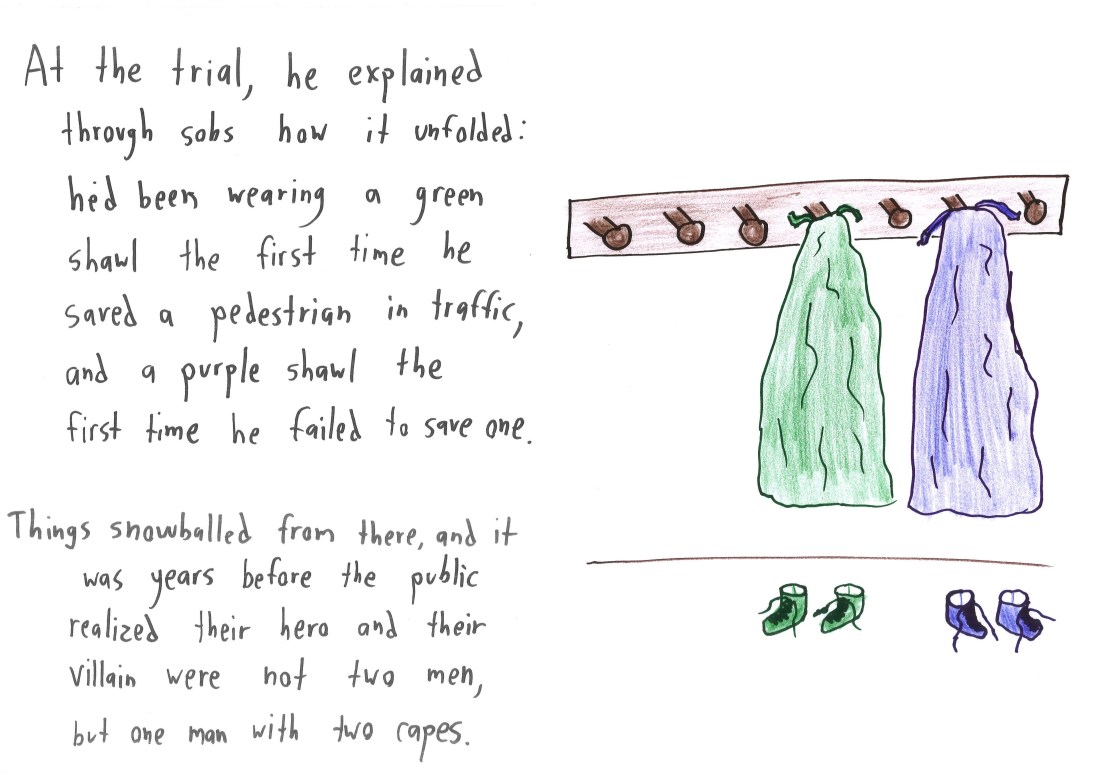 At the trial, he explained
through sobs how it unfolded:
he'd been wearing a green
shawl the first time he
saved a pedestrian in traffic,
and a purple shawl the
first time he failed to save one.
Things snowballed from there, and it
was years before the public
realized their hero and their
villain were not two men,
but one man with two capes.